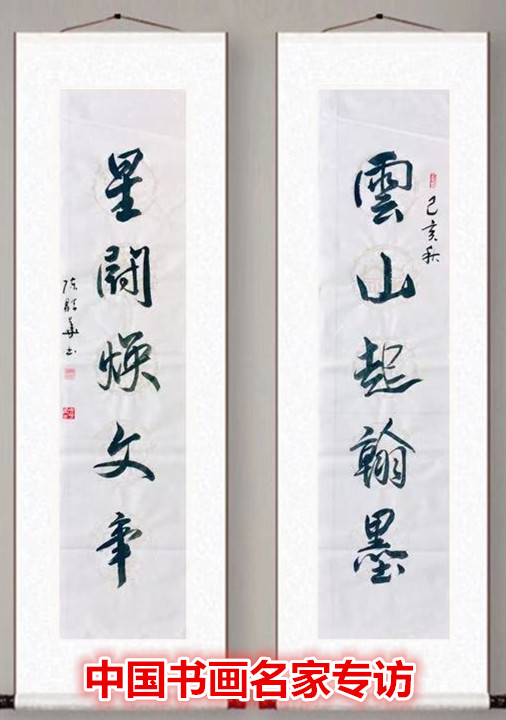 己亥秋
雲山起翰墨
星闘焕文章
陈 华书
中国书画名家专访